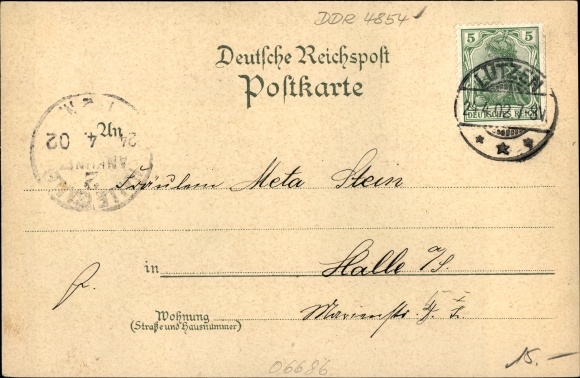 DDR 4854
Deutsche Reichspost
Postkarte
5 5
DEUTSCHES REICH
LÜTZEN
4.02.7-8V
24 4 02
ANKUNFT
Fräulein Meta Stein
in Halle a/S.
Wohnung
(Straße und Hausnummer)
06686
15.-